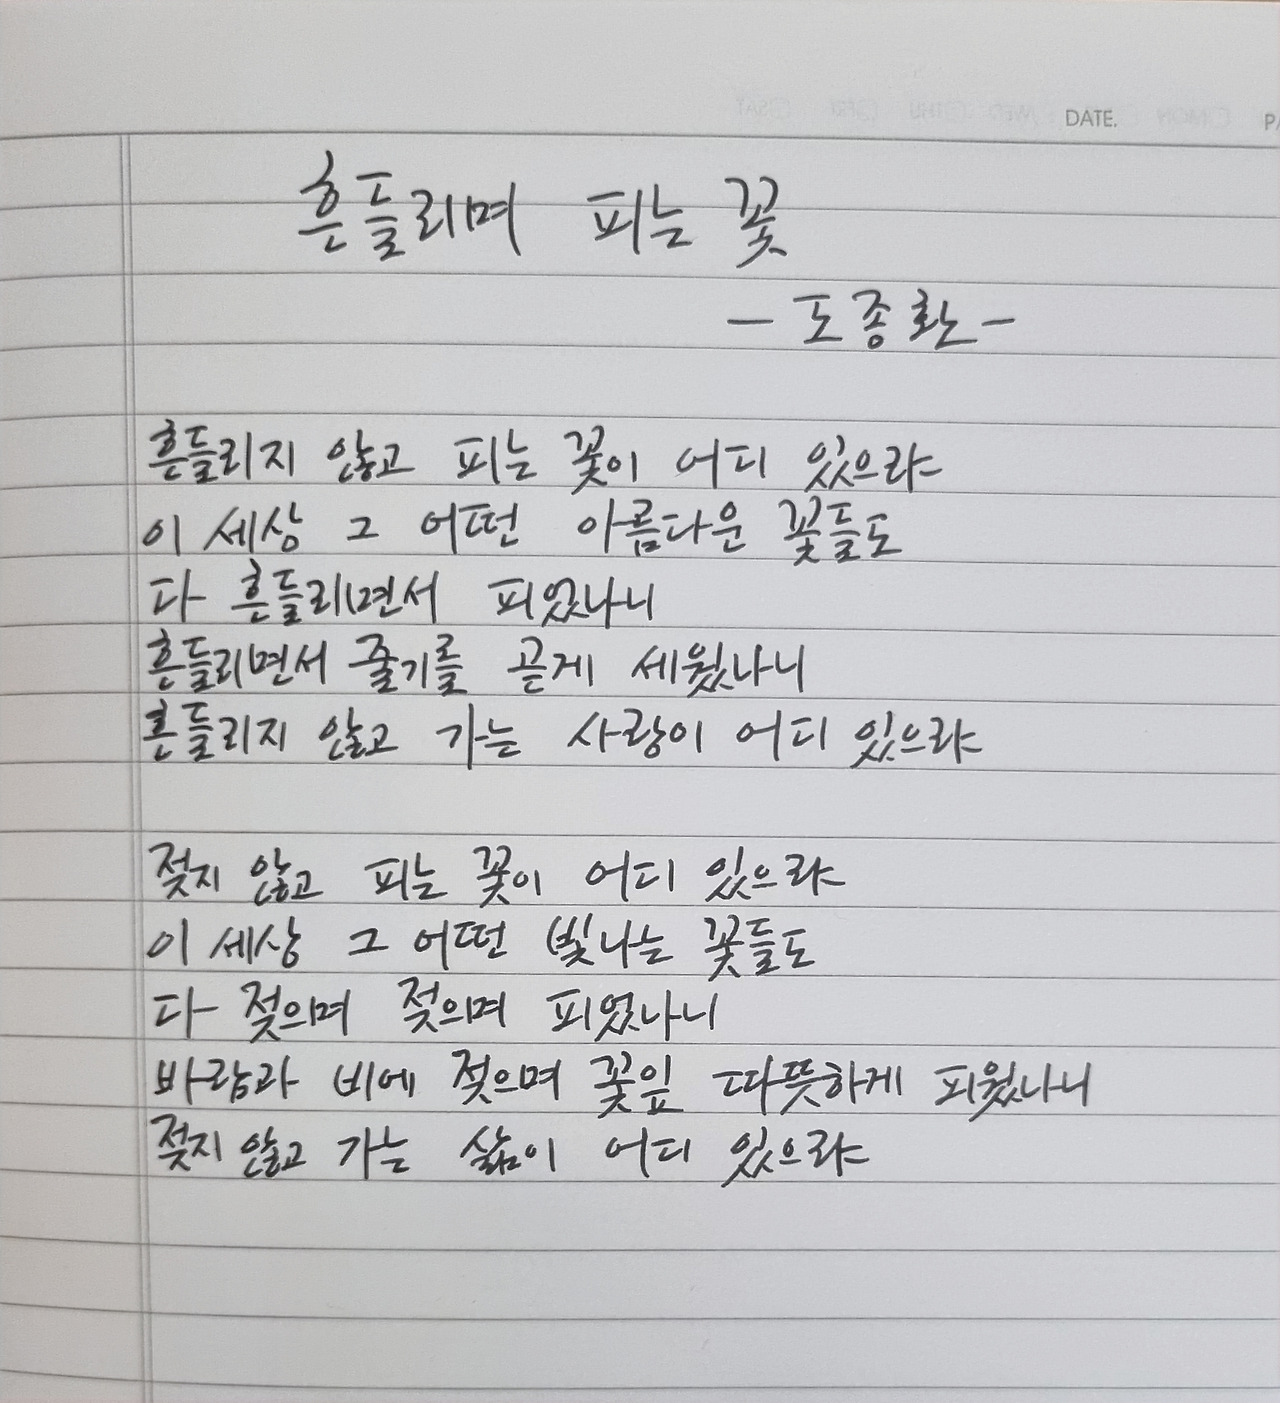 DATE.
흔들리며 피는 꽃
- 도종환 -
흔들리지 않고 피는 꽃이 어디 있으랴
이 세상 그 어떤 아름다운 꽃들도
다 흔들리면서 피었나니
흔들리면서 줄기를 곧게 세웠나니
흔들리지 않고 가는 사랑이 어디 있으랴
젖지 않고 피는 꽃이 어디 있으랴
이 세상 그 어떤 빛나는 꽃들도
다 젖으며 젖으며 피었나니
바람과 비에 젖으며 꽃잎 따뜻하게 피웠나니
젖지 않고 가는 삶이 어디 있으랴